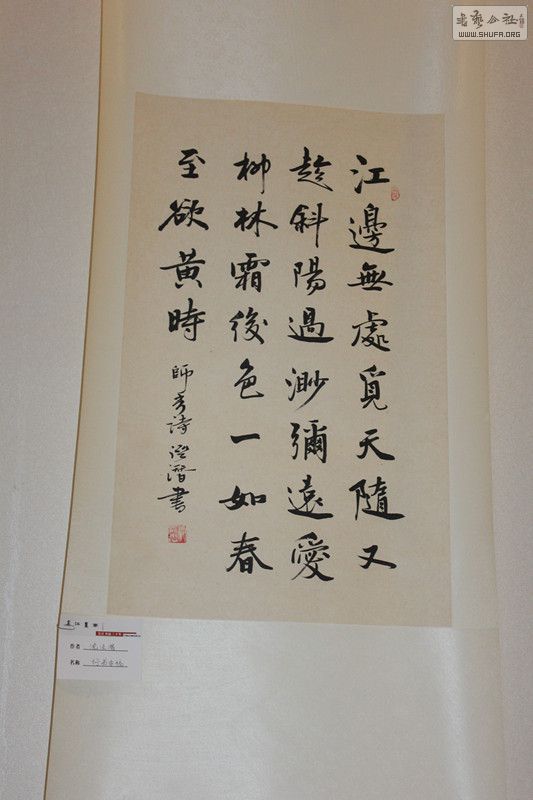 江邊無處覓天隨又
趁斜陽過渺彌遠愛
柳林霜後色一如春
至欲黃時
師秀詩 潛書
書藝公社
WWW.SHUFA.ORG
作者
名称